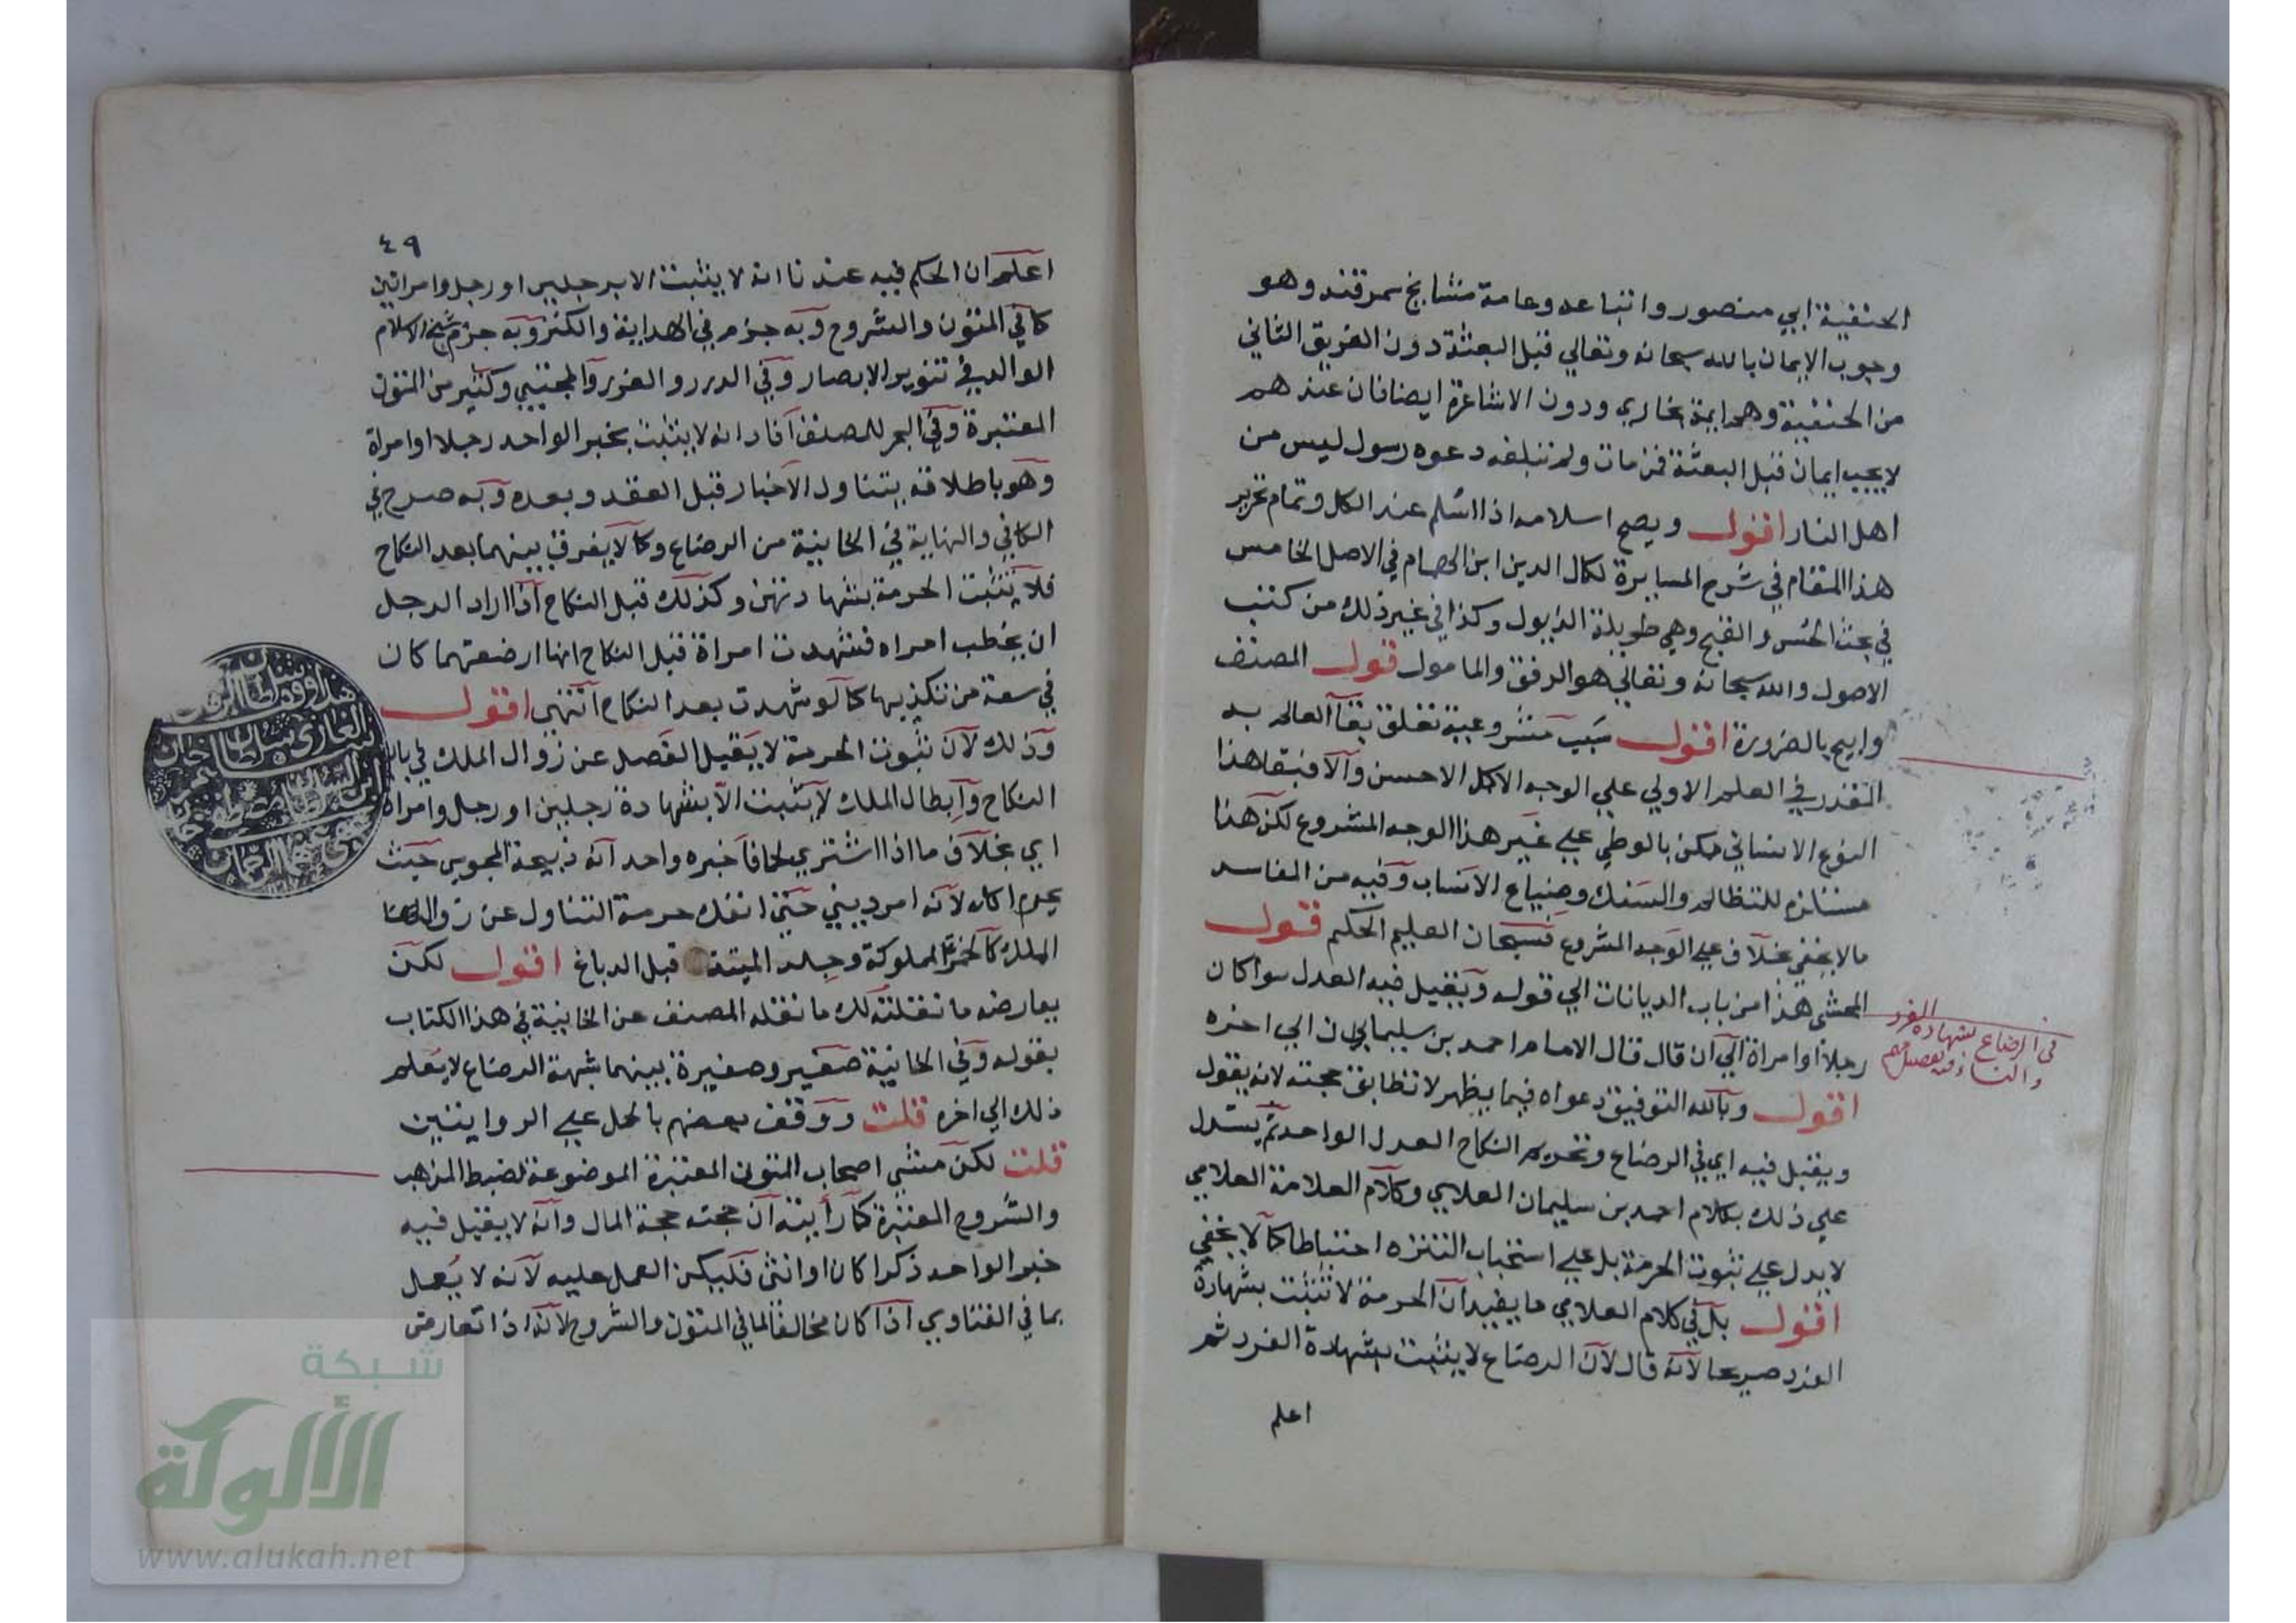 الحنفية ابي منصور واتباعه وعامة مشايخ سمرقند وهو
وجوب الايمان بالله سبحانه وتعالي قبل البعثة دون الفريق الثاني
من الحنفية وهم ايمة بخاري ودون الاشاعرة ايضا فان عندهم
لا يجب ايمان قبل البعثة فمن مات ولم تبلغه دعوه رسول ليس من
اهل النار اقول ويصح اسلامه اذا اسلم عند الكل وتمام تحرير
هذا المقام في شرح المسايرة لكمال الدين ابن الهمام في الاصل الخامس
في بحث الحسن والقبح وهي طويلة الذيول وكذا في غير ذلك من كتب
الاصول والله سبحانه وتعالي هو الرفق والمامول قول المصنف
وابيح بالضرورة اقول سبب مشروعيته تعلق بقآ العالم به
المقدر في العلم الاولي علي الوجه الاكمل الاحسن والا فبقا هذا
النوع الانساني ممكن بالوطي علي غير هذا الوجه المشروع لكن هذا
مستلزم للتظالم والسفك وضياع الانساب وفيه من المفاسد
مالا يخفي بخلاف علي الوجه المشروع فسبحان العليم الحكيم قول
المحشي هذا من باب الديانات الي قوله ويقبل فيه العدل سوا كان
رجلا او امراة الي ان قال قال الامام احمد بن سليمان الي اخره
اقول وبالله التوفيق دعواه فيما يظهر لا تطابق حجته لانه يقول
ويقبل فيه اي في الرضاع وتحريم النكاح العدل الواحد ثم يستدل
علي ذلك بكلام احمد بن سليمان العلامي وكلام العلامة العلامي
لا يدل علي ثبوت الحرمة بل علي استحباب التنزه احتياطا كما لا يخفي
اقول بل في كلام العلامي ما يفيد ان الحرمة لا تثبت بشهادة
الفرد صريحا لانه قال لان الرضاع لا يثبت بشهادة الفرد ثم
اعلم
في الرضاع بشهادة الفرد
والنساء وفيه تفصيل مهم
٤٩
اعلم ان الحكم فيه عندنا انه لا يثبت الا برجلين او رجل وامراتين
كما في المتون والشروح وبه جزم في الهداية والكنز وبه جزم شيخ الاسلام
الوالد في تنوير الابصار وفي الدرر والغرر والمجتبي وكثير من المتون
المعتبرة وفي البحر للمصنف افاد انه لا يثبت بخبر الواحد رجلا او امراة
وهو باطلاقه يتناول الاخبار قبل العقد وبعده وبه صرح في
الكافي والنهاية في الخانية من الرضاع وكما لا يفرق بينهما بعد النكاح
فلا يثبت الحرمة بشهادتهن وكذلك قبل النكاح اذا اراد الرجل
ان يخطب امراه فشهدت امراة قبل النكاح انها ارضعتهما كان
في سعة من تكذيبها كما لو شهدت بعد النكاح انتهي اقول
وذلك لان ثبوت الحرمة لا يقبل الفصل عن زوال الملك في باب
النكاح وابطال الملك لا يثبت الا بشهادة رجلين او رجل وامراة
اي بخلاف ما اذا اشتري لحما فاخبره واحد انه ذبيحة المجوس حيث
يحرم اكله لانه امر ديني حتي انفك حرمة التناول عن زوال
الملك كالخمر المملوكة وجلد الميتة قبل الدباغ اقول لكن
يعارضه ما نقلته لك ما نقله المصنف عن الخانية في هذا الكتاب
بقوله وفي الخانية صغير وصغيرة بينهما شبهة الرضاع لا يعلم
ذلك الي اخره قلت ووقف بعضهم بالحل علي الروايتين
قلت لكن مشي اصحاب المتون المعتبرة الموضوعة لضبط المذهب
والشروح المعتبرة كما رايته ان حجته حجة المال وانه لا يقبل فيه
خبر الواحد ذكرا كان او انثي فليكن العمل عليه لانه لا يعمل
بما في الفتاوي اذا كان مخالفا لما في المتون والشروح لانه اذا تعارض
شبكة
الألوكة
www.alukah.net